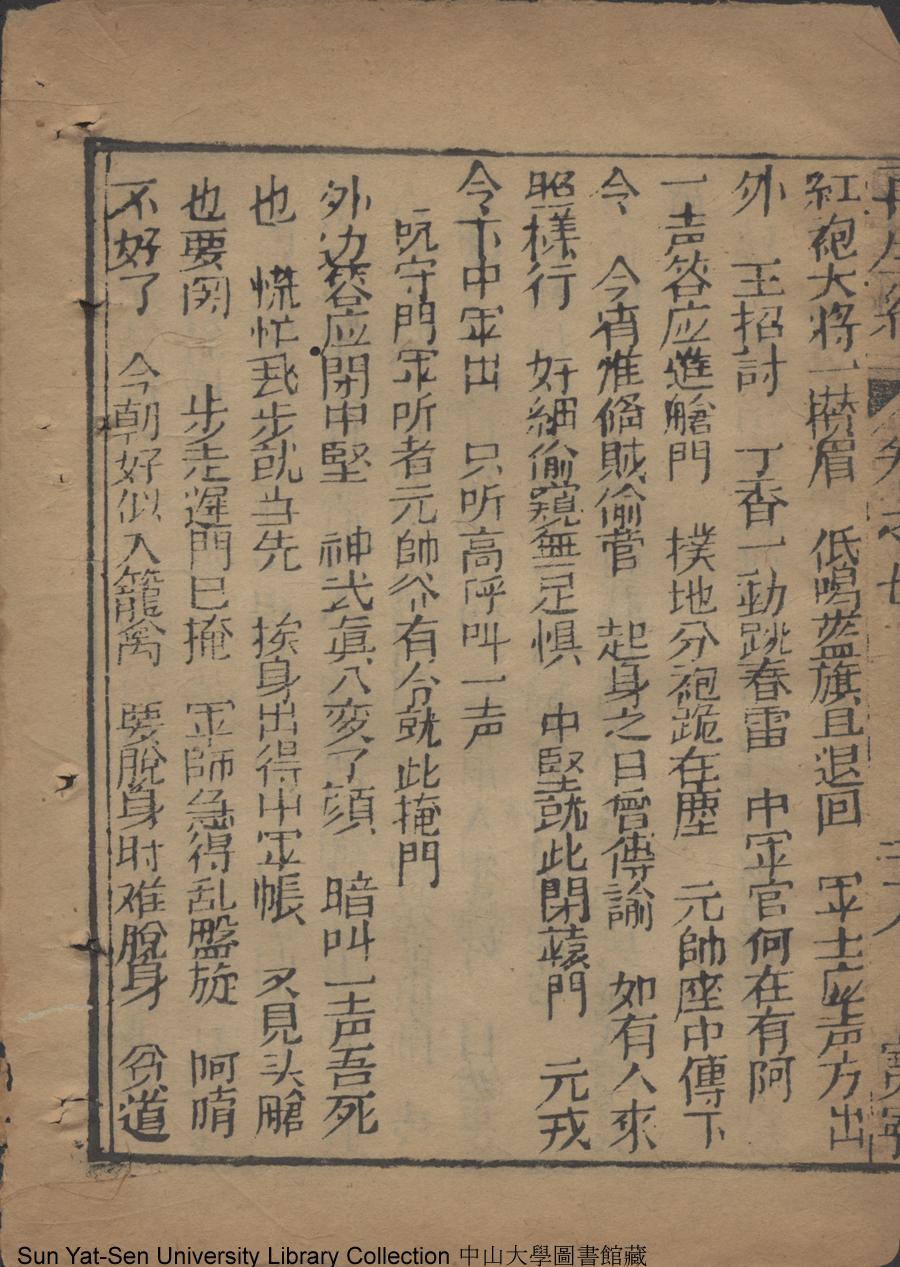 紅袍大将一攅眉　低鳴藍旗且退回　军士应声方出
外　王招討　丁香一动跳春雷　中军官何在有阿
一声答应進艙門　撲地分袍跪在塵　元帥座中傳下
令　今宵惟偹賊偷营　起身之日曾傳諭　如有人來
照樣行　奸細偷窺無足惧　中堅就此閉轅門　元戎
令下中军出　只听高呼叫一声
吭守門军听者元帅爷有令就此掩門
外边答应閉中堅　神武真人变了顔　暗叫一声吾死
也　慌忙丢步就当先　挨身出得中军帳　又见头艙
也要関　步走遲門已掩　军師急得乱盤旋　阿唷
不好了　今朝好似入籠禽　要脱身时难脱身　爷道
Sun Yat-Sen University Library Collection 中山大學圖書館藏